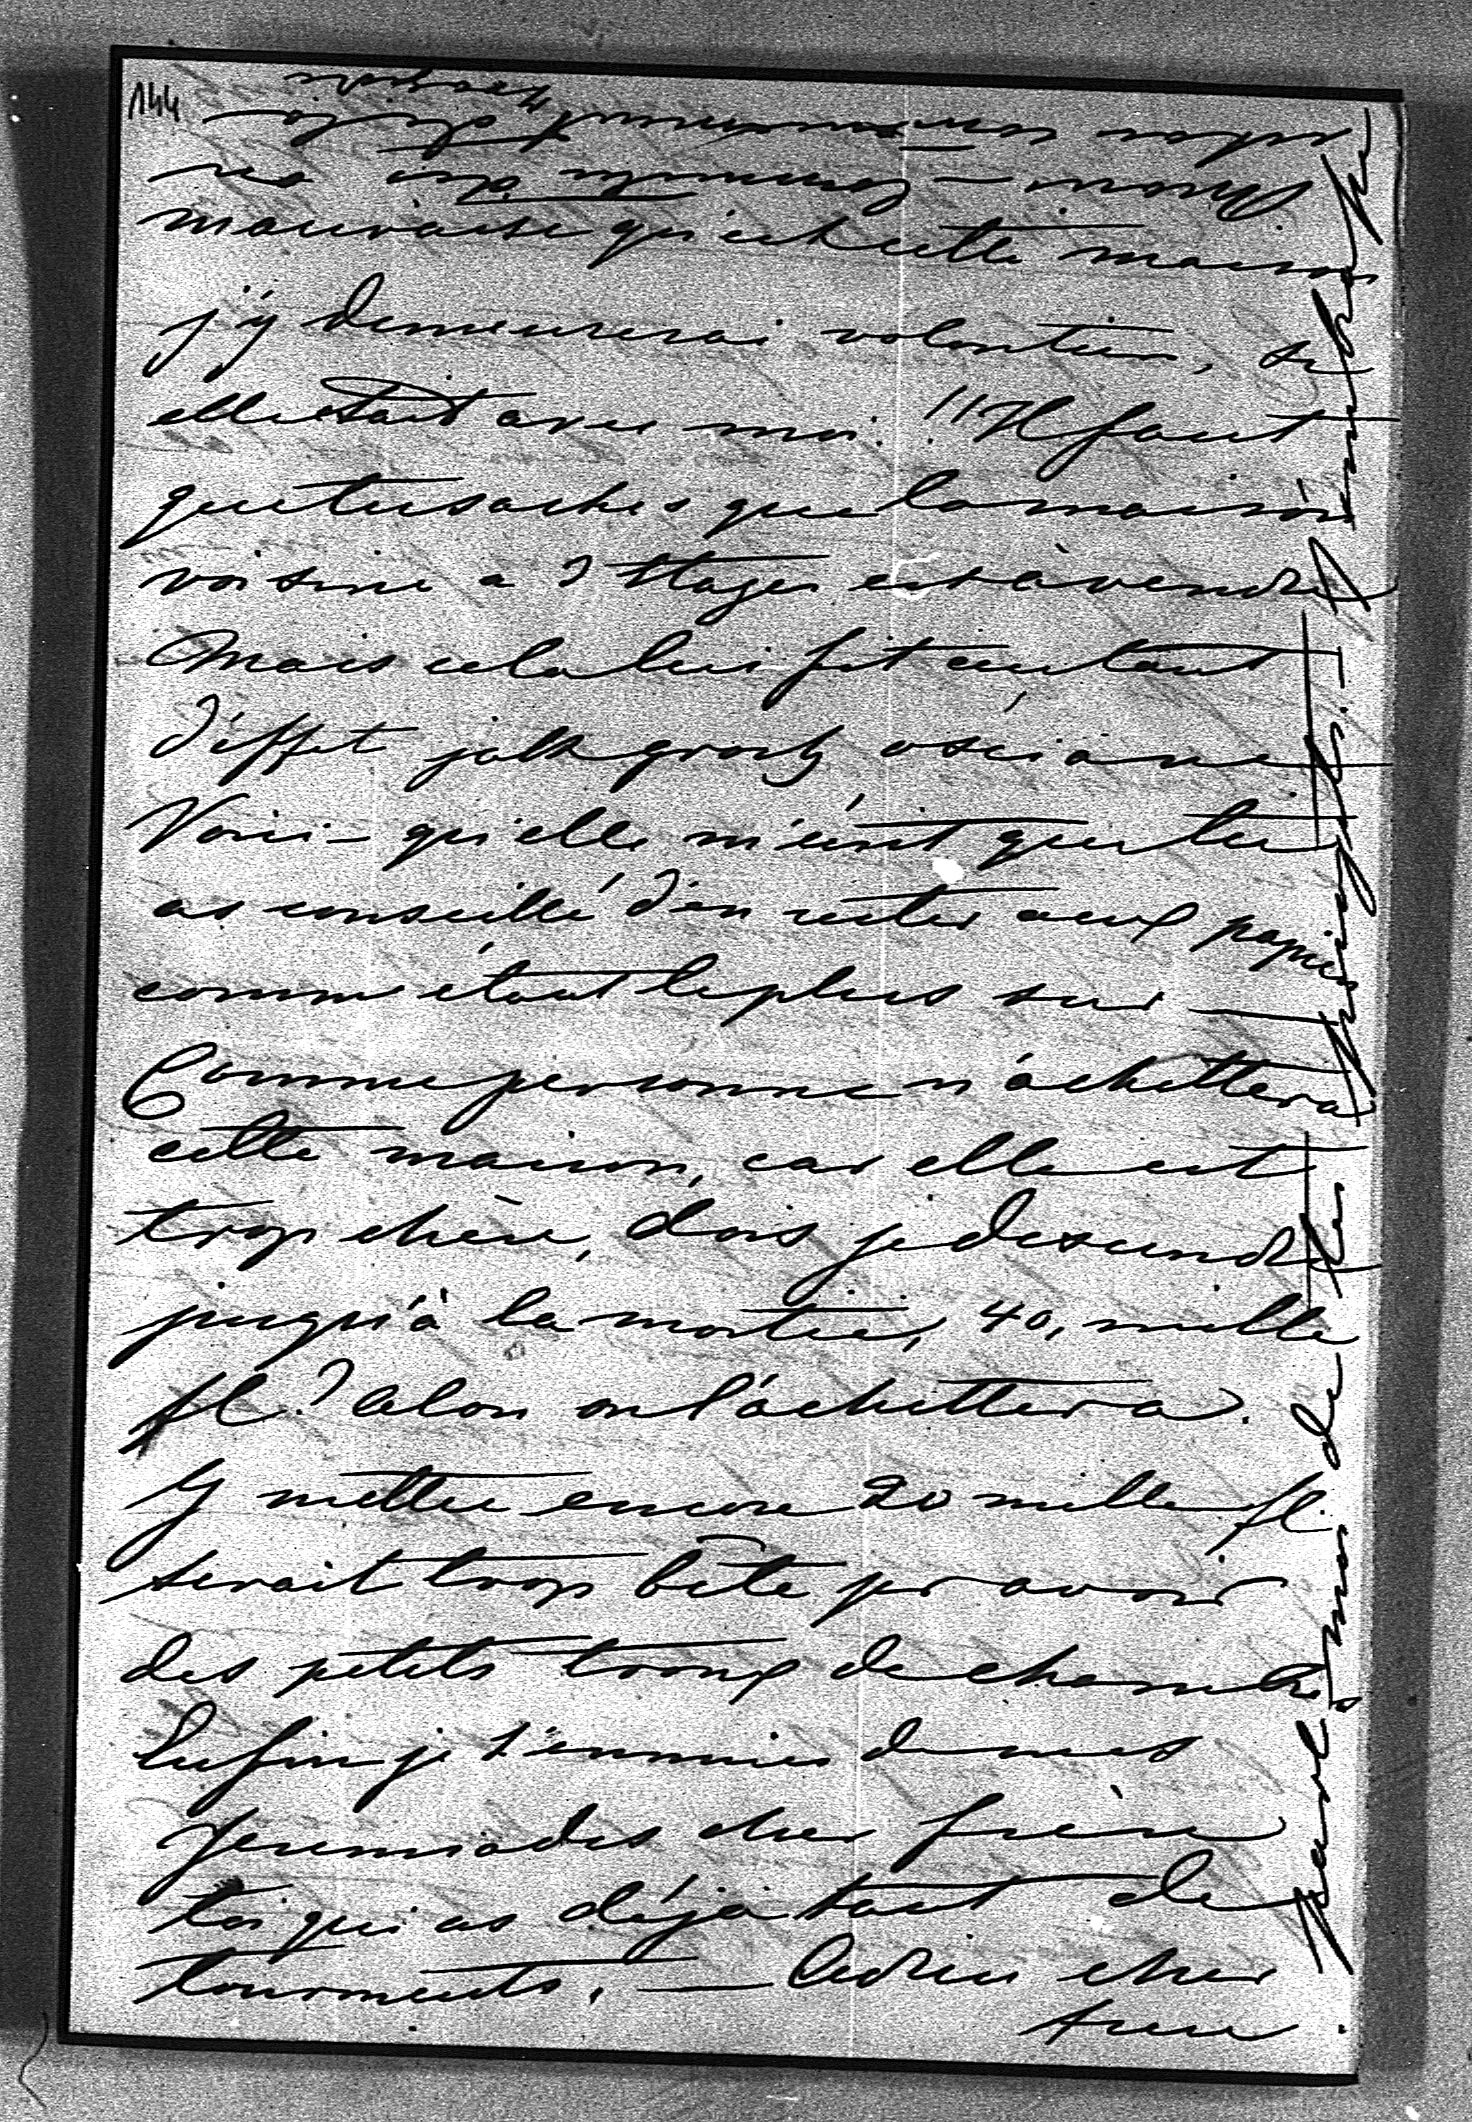 144
mauvaise qu'est cette maison
j'y demeurerai volontiers, si
elle était avec moi!! Il faut
que tu saches que la maison
voisine a 3 étages est à vendre
Mais cela lui fit autant
d'éffet jak groch o ścianę
Voici – qu'elle m'écrit que tu
as conseillé d'en rester aux papiers
comme étant le plus sur —
Comme personne n'achettera
cette maison, car elle est
trop chère, dois je descendre
jusqu'à la moitié, 40, mille
fl? Alors on l'achettera.
Y mettre encore 20 mille fl.
serait trop bête pr avoir
des petits troux de chambres
Enfin je t'ennuies de mes
Jeremiades cher frère
toi qui as déjà tant de
tourments. — Adieu cher
frère.